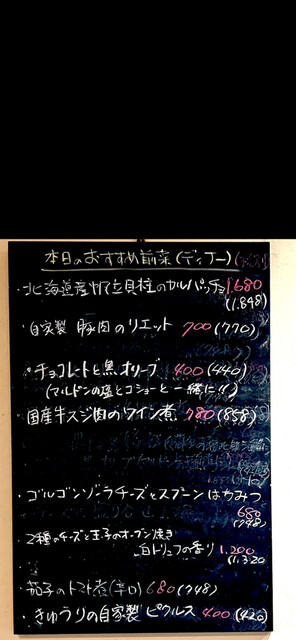 本日のおすすめ前菜(ディナー)
・北海道産帆立貝柱のカルパッチョ 1,680
(1,848)
・自家製 豚肉のリエット 700(770)
・チョコレートと黒オリーブ 400(440)
(マルドンの塩とコショーと一緒に!!)
・国産牛スジ肉のワイン煮 780(858)
・ゴルゴンゾーラチーズとスプーンはちみつ
680
(748)
・2種のチーズと玉子のオーブン焼き
白トリュフの香り 1,200
(1,320
茄子のトマト煮(辛口) 680(748)
・きゅうりの自家製ピクルス 400